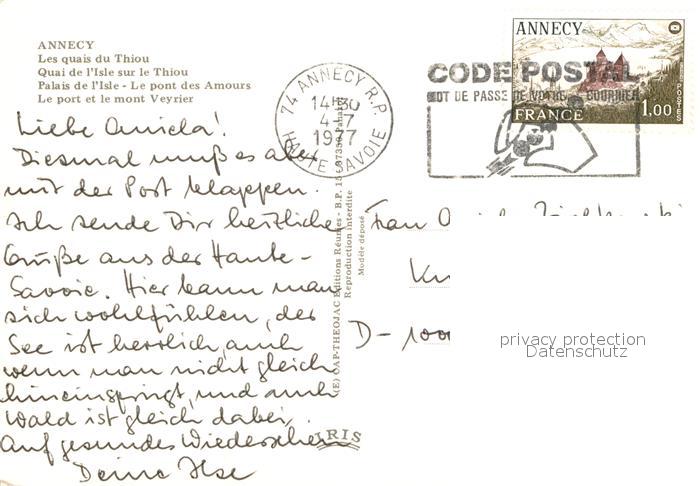 ANNECY
Les quais du Thiou
Quai de l'Isle sur le Thiou
Palais de l'Isle - Le pont des Amours
Le port et le mont Veyrier
74 ANNECY R.P.
14H30
4-7
1977
HAUTE-SAVOIE
CODE POSTAL
MOT DE PASSE DE VOTRE COURRIER
ANNECY
FRANCE
1.00
POSTES
Liebe
Diesmal muß es aber
mit der Post klappen.
Ich sende Dir herzliche
Grüße aus der Haute-
Savoie. Hier kann man
sich wohlfühlen, der
See ist herrlich, auch
wenn man nicht gleich
hineinspringt, und auch
Wald ist gleich dabei.
Auf gesundes Wiedersehen
Deine Ilse
Frau
D-
(E) CAP-THEOJAC Editions Réunies - B.P. 15
Reproduction interdite
Modèle déposé
privacy protection
Datenschutz